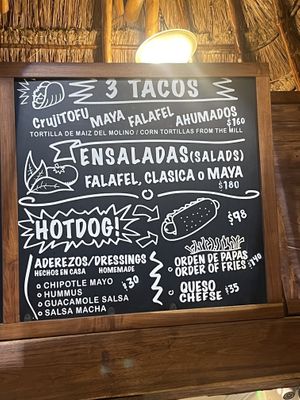 3 TACOS
CrujiTOFU MAYA FALAFEL AHUMADOS
$160
TORTILLA DE MAIZ DEL MOLINO / CORN TORTILLAS FROM THE MILL
ENSALADAS (SALADS)
FALAFEL, CLASICA o MAYA
$180
HOTDOG!
$98
ADEREZOS/DRESSINGS
HECHOS EN CASA HOMEMADE
$30
CHIPOTLE MAYO
HUMMUS
GUACAMOLE SALSA
SALSA MACHA
ORDEN DE PAPAS
ORDER OF FRIES
$140
QUESO
CHEESE
$35